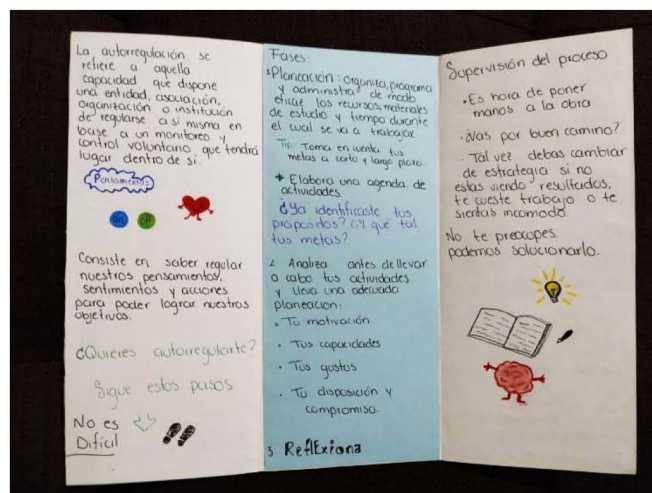 La autorregulación se
refiere a aquella
capacidad que dispone
una entidad, asociación,
organización o institución
de regularse a si misma en
base a un monitoreo y
control voluntario que tendrá
lugar dentro de sí.
Pensamientos
on off
Consiste en saber regular
nuestros pensamientos,
sentimientos y acciones
para poder lograr nuestros
objetivos.
¿Quieres autorregularte?
Sigue estos pasos
No es
Difícil
Fases:
1 Planeación: organiza, programa
y administra de modo
eficaz los recursos, materiales
de estudio y tiempo durante
el cual se va a trabajar
Tip: Toma en cuenta tus
metas a corto y largo plazo.
Elabora una agenda de
actividades.
¿Ya identificaste tus
propositos? ¿Y que tal
tus metas?
2 Analiza antes de llevar
a cabo tus actividades
y lleva una adecuada
planeacion:
• Tu motivación
• Tus capacidades
• Tus gustos
• Tu disposición y
compromiso.
3 ReflExiona
Supervisión del proceso
• Es hora de poner
manos a la obra
• ¿Vas por buen camino?
• Tal vez debas cambiar
de estrategia si no
estas viendo resultados,
te cueste trabajo o te
sientas incomodo.
No te preocupes.
podemos solucionarlo.